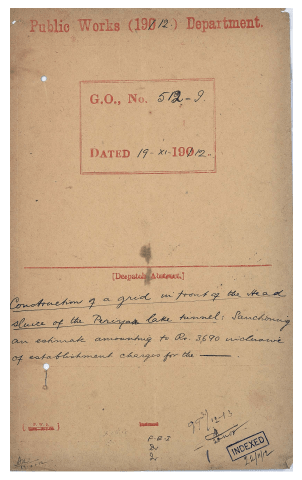 Public Works (1912) Department.
G.O., No. 512-I.
DATED 19-XI-1912.
[Despatch Abstract.]
Construction of a grid in front of the Head
sluice of the Periyar lake tunnel: Sanctioning
an estimate amounting to Rs. 3,690 inclusive
of establishment charges for the —
INDEXED